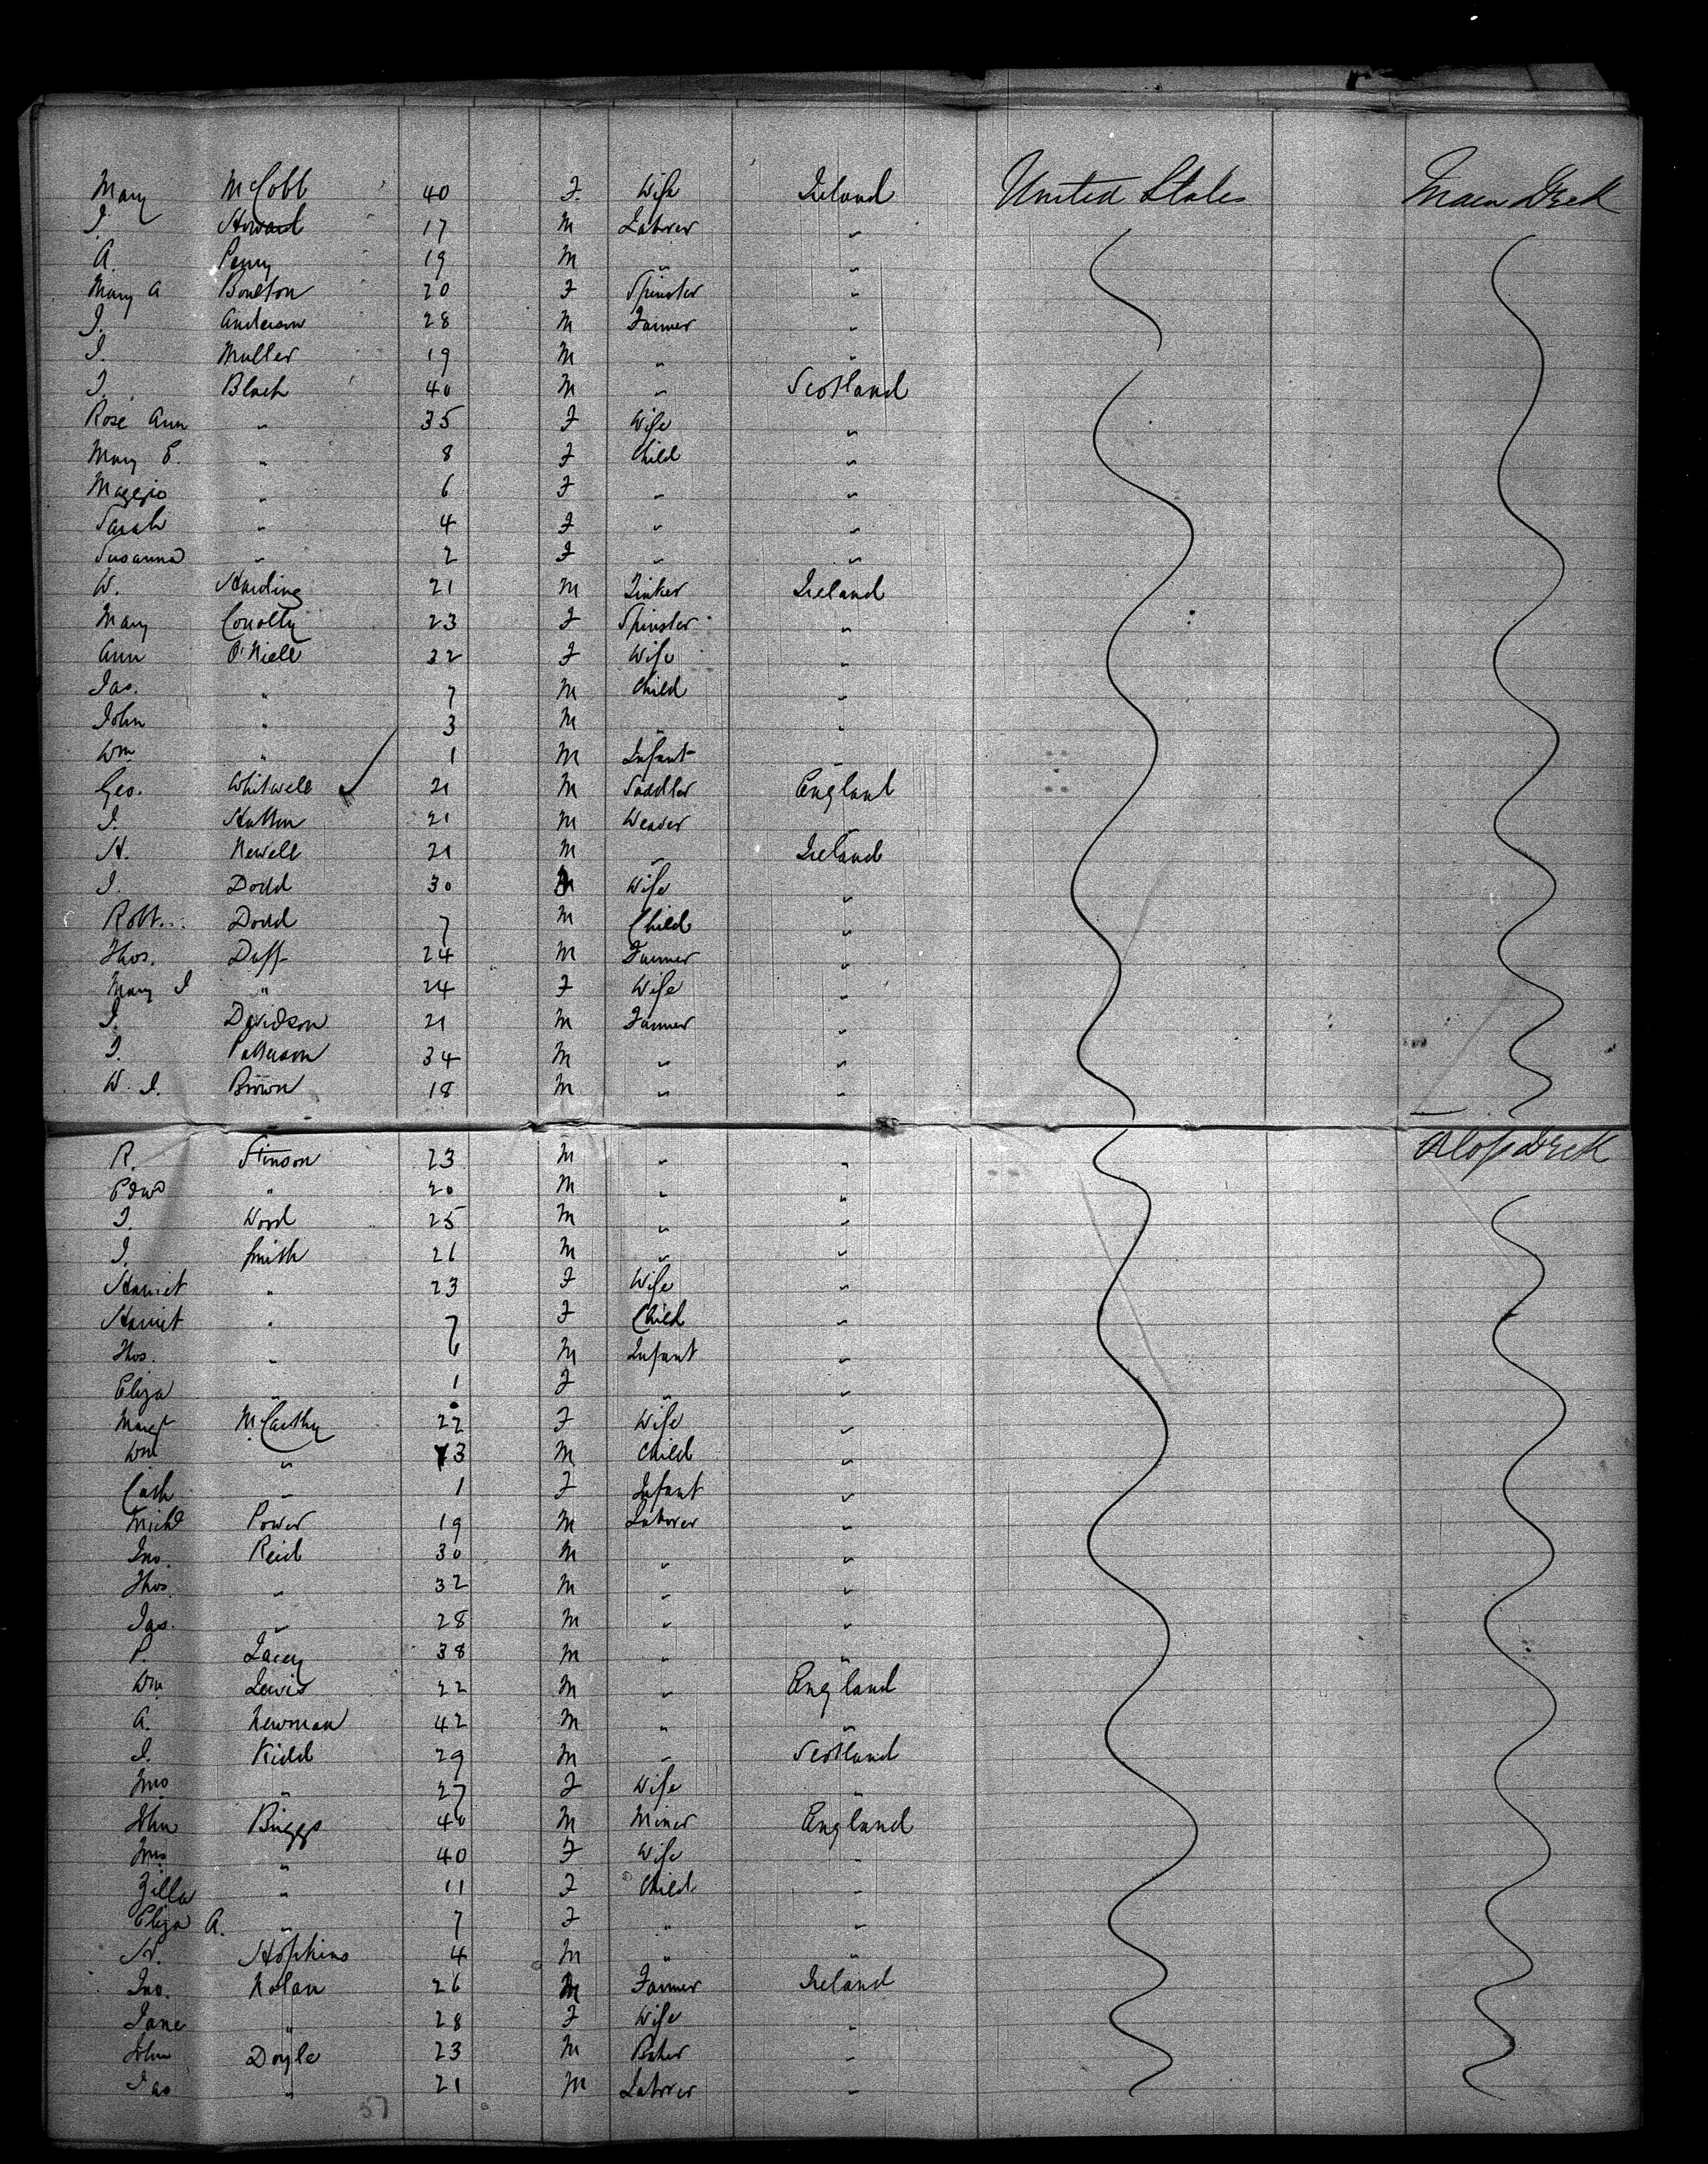 Mary McCobb 40 F. Wife Ireland United States Main Deck
J. Howard 17 M Laborer "
A. Perry 19 M " "
Mary A Boulton 20 F Spinster "
J. Anderson 28 M Farmer "
J. Muller 19 M " "
J. Black 40 M " Scotland
Rose Ann " 35 F Wife "
Mary E. " 8 F Child "
Maggie " 6 F " "
Sarah " 4 F " "
Susanna " 2 F " "
W. Harding 21 M Tinker Ireland
Mary Conolly 23 F Spinster "
Ann O'Niell 32 F Wife "
Jas. " 7 M Child "
John " 3 M " "
Wm " 1 M Infant "
Geo. Whitwell 21 M Saddler England
J. 21 M Weaver "
H. Newell 21 M " Ireland
J. Dodd 30 Wife "
Robt. Dodd 7 M Child "
Thos. Duff 24 M Farmer "
Mary J " 24 F Wife "
J. Davidson 21 M Farmer "
J. Patterson 34 M " "
W. J. Brown 18 M " "
R. Stinson 23 M " " Deck
Edwd " 20 M " "
J. Wood 25 M " "
J. Smith 26 M " "
Harriet " 23 F Wife "
Harriet " 7 F Child "
Thos. " 6 M Infant "
Eliza " 1 F " "
Margt McCarthy 22 F Wife "
Wm " 3 M Child "
Cath " 1 F Infant "
Michl Power 19 M Laborer "
Jno. Reid 30 M " "
Thos " 32 M " "
Jas. " 28 M " "
P. Lacey 38 M " "
Wm Lewis 22 M " England
A. Newman 42 M " "
J. Kidd 29 M " Scotland
Mrs " 27 F Wife "
John Briggs 40 M Miner England
Mrs " 40 F Wife "
Zilla " 11 F Child "
Eliza A. " 7 F " "
Hopkins 4 M " "
Jno. Nolan 26 M Farmer Ireland
Jane " 28 F Wife "
John Doyle 23 M Baker "
Jas " 21 M Laborer "
57